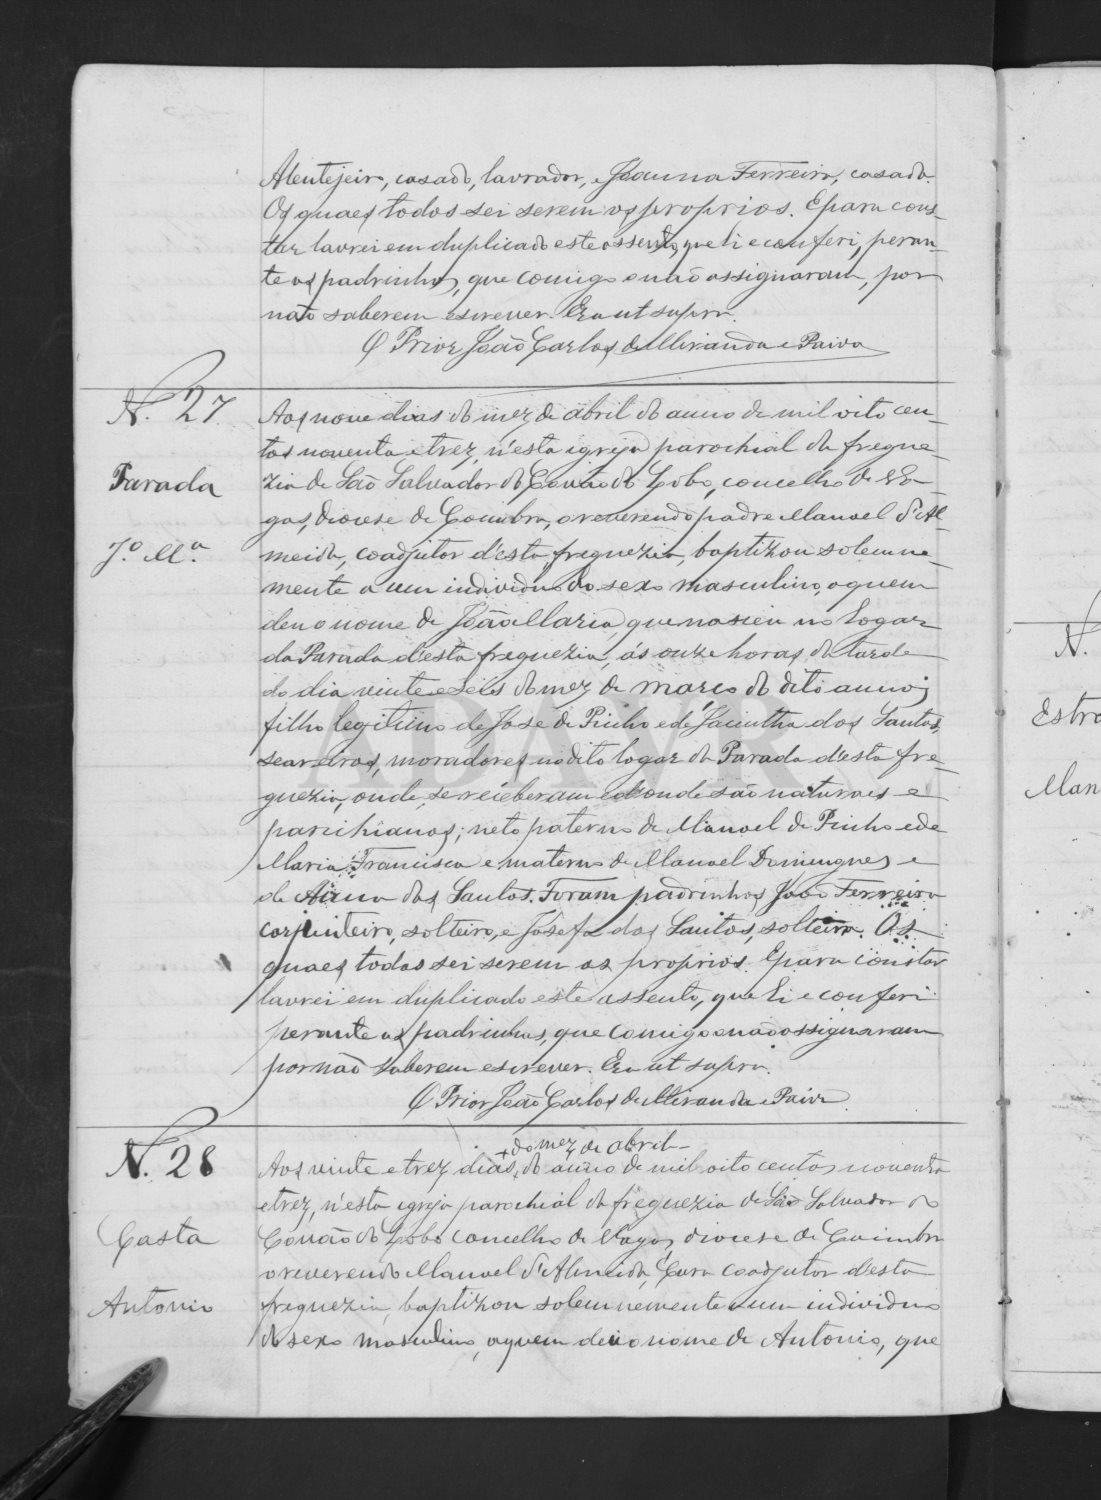 Alentejeiro, casado, lavrador, e Joanna Ferreira, casada.
Os quaes todos sei serem os proprios. E para cons-
tar lavrei em duplicado este assento, que li e conferi, peran-
te os padrinhos, que comigo o não assignaram, por
não saberem escrever. Era ut supra.
O Prior João Carlos de Miranda e Paiva
N. 27
Parada
J.º M.ª
Aos nove dias do mez de abril do anno de mil oito cen-
tos noventa e trez, n'esta igreja parochial da fregue-
zia de São Salvador do Covão do Lobo, concelho de Va-
gos, diocese de Coimbra, o reverendo padre Manoel d'Al-
meida, coadjutor d'esta freguezia, baptizou solemne-
mente a um individuo do sexo masculino, a quem
deu o nome de João Maria, que nasceu no Logar
da Parada d'esta freguezia, ás onze horas da tarde
do dia vinte e seis do mez de março do dito anno;
filho legitimo de José de Pinho e de Jacintha dos Santos,
seareiros, moradores no dito logar da Parada d'esta fre-
guezia, onde se receberam e d'onde são naturaes e
parochianos; neto paterno de Manoel de Pinho e de
Maria Francisca e materno de Manoel Domingues e
de Anna dos Santos. Foram padrinhos João Ferreira
carpinteiro, solteiro, e Josefa dos Santos, solteira. Os
quaes todos sei serem os proprios. E para constar
lavrei em duplicado este assento, que li e conferi
perante os padrinhos, que comigo o não assignaram
por não saberem escrever. Era ut supra.
O Prior João Carlos de Miranda e Paiva
N. 28
Casta
Antonio
+ do mez de abril
Aos vinte e trez dias + do anno de mil oito centos noventa
e trez, n'esta igreja parochial da freguezia de São Salvador do
Covão do Lobo concelho de Vagos, diocese de Coimbra
o reverendo Manoel d'Almeida, Cura coadjutor d'esta
freguezia, baptizou solemnemente a um individuo
do sexo masculino, a quem deu o nome de Antonio, que
N.
Estra
Man
ADAVR